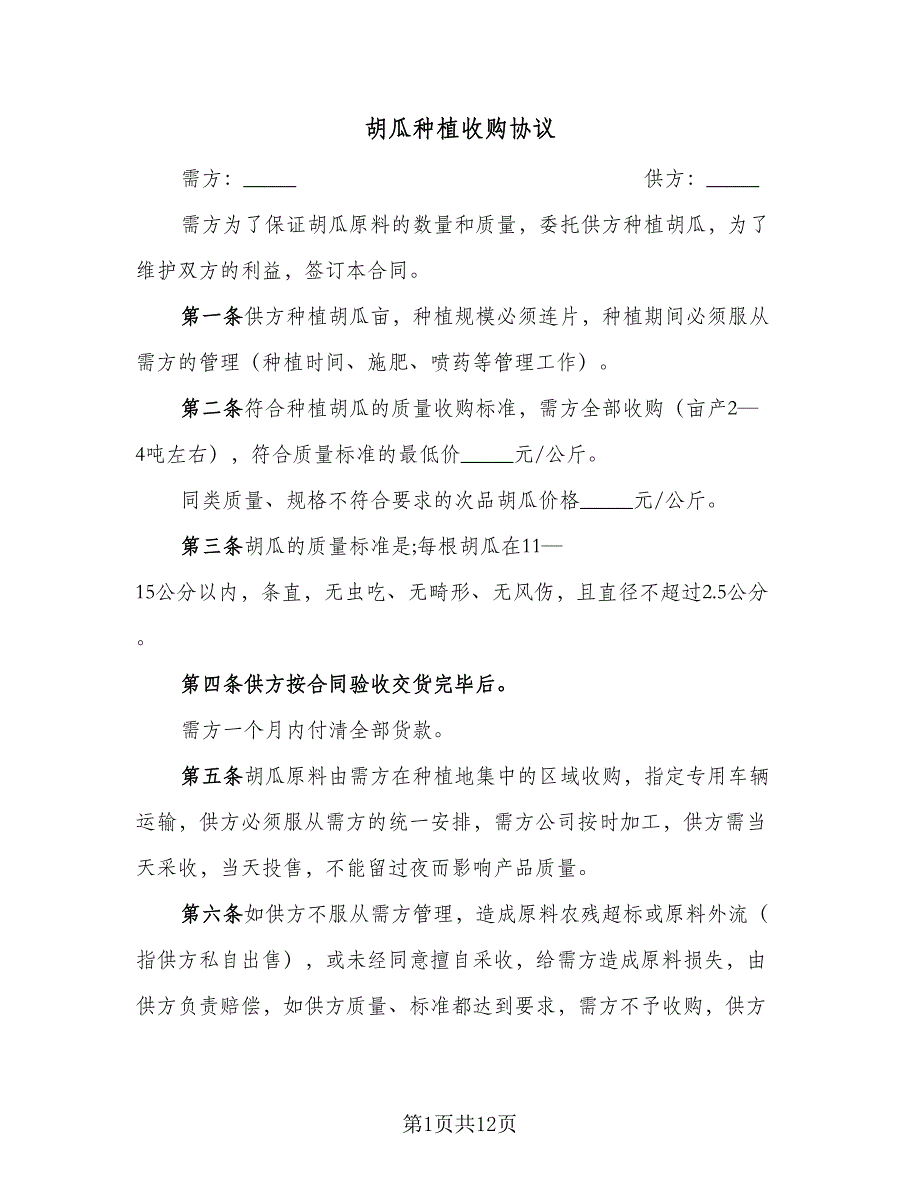 胡瓜种植收购协议
需方：_____ 供方：_____
需方为了保证胡瓜原料的数量和质量，委托供方种植胡瓜，为了
维护双方的利益，签订本合同。
第一条供方种植胡瓜亩，种植规模必须连片，种植期间必须服从
需方的管理（种植时间、施肥、喷药等管理工作）。
第二条符合种植胡瓜的质量收购标准，需方全部收购（亩产2—
4吨左右），符合质量标准的最低价_____元/公斤。
同类质量、规格不符合要求的次品胡瓜价格_____元/公斤。
第三条胡瓜的质量标准是;每根胡瓜在11—
15公分以内，条直，无虫吃、无畸形、无风伤，且直径不超过2.5公分
。
第四条供方按合同验收交货完毕后。
需方一个月内付清全部货款。
第五条胡瓜原料由需方在种植地集中的区域收购，指定专用车辆
运输，供方必须服从需方的统一安排，需方公司按时加工，供方需当
天采收，当天投售，不能留过夜而影响产品质量。
第六条如供方不服从需方管理，造成原料农残超标或原料外流（
指供方私自出售），或未经同意擅自采收，给需方造成原料损失，由
供方负责赔偿，如供方质量、标准都达到要求，需方不予收购，供方
第1页共12页